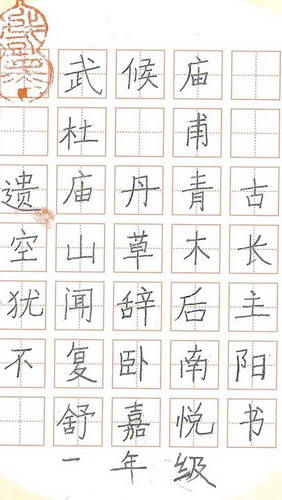 武候庙
杜甫
遗庙丹青古
空山草木长
犹闻辞后主
不复卧南阳
舒嘉悦书
一年级